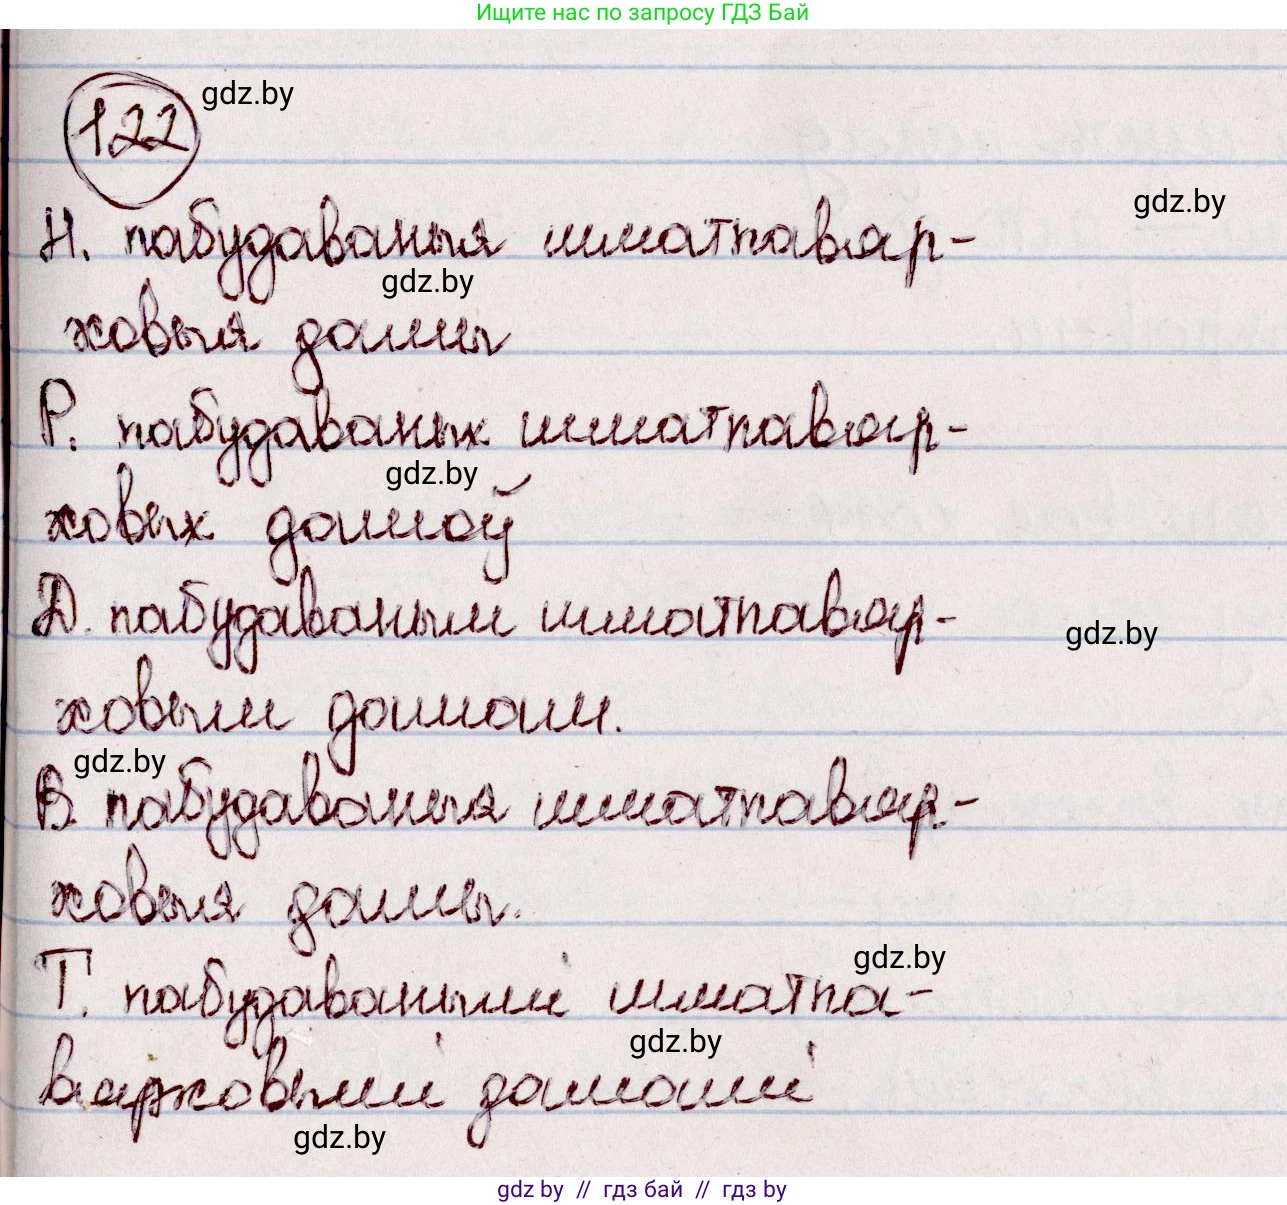 Ищите нас по запросу ГДЗ Бай
122
gdz.by
gdz.by
Н. пабудаваныя шматпавяр-
gdz.by
ховыя дамы
Р. пабудаваных шматпавяр-
gdz.by
ховых дамоў
Д. пабудаваным шматпавяр-
gdz.by
ховым дамам.
gdz.by
В. пабудаваныя шматпавяр-
ховыя дамы.
gdz.by
Т. пабудаванымі шматпа-
gdz.by
вярховымі дамамі
gdz.by
gdz by // гдз бай // гдз by